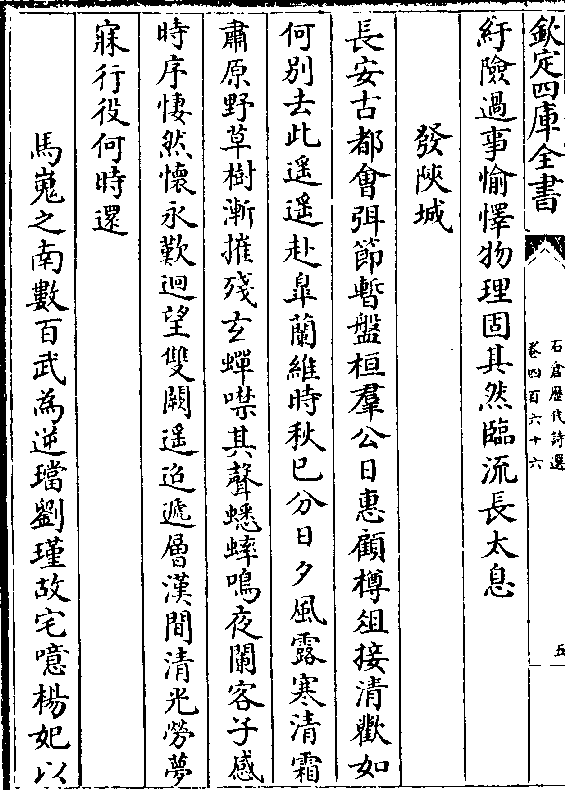 欽定四庫全書
石倉歷代詩選
卷四百六十六
五
紆險過事愉懌物理固其然臨流長太息
發陜城
長安古都會弭節暫盤桓羣公日惠顧樽俎接清歡如
何别去此遥遥赴臯蘭維時秋已分日夕風露寒清霜
肅原野草樹漸摧殘玄蟬噤其聲蟋蟀鳴夜闌客子感
時序悽然懷永歎迴望雙闕遥迢遞層漢間清光勞夢
寐行役何時還
馬嵬之南數百武為逆璫劉瑾故宅噫楊妃以